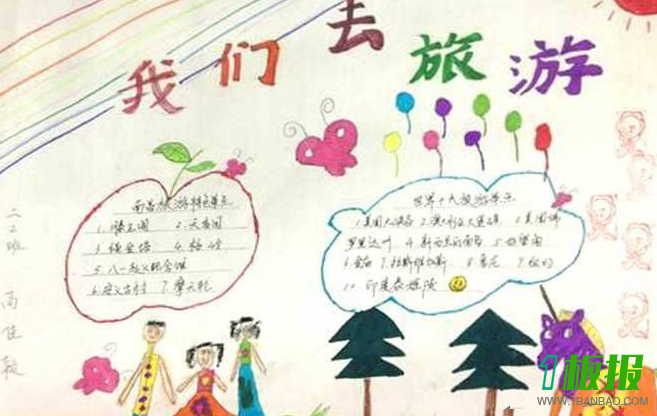 我们去旅游
南昌旅游特色景点
1.滕王阁 2.天香园
3.绳金塔 4.梅岭
5.八一起义纪念馆
6.安义古村 7.摩天轮
世界十大旅游景点
1.美国大峡谷 2.澳大利亚大堡礁 3.美国佛
罗里达州 4.新西兰的南岛 5.好望角
6.金庙 7.拉斯维加斯 8.悉尼 9.纽约
10.印度泰姬陵
二2班
高佳毅
1板报
WWW.1BANBAO.COM